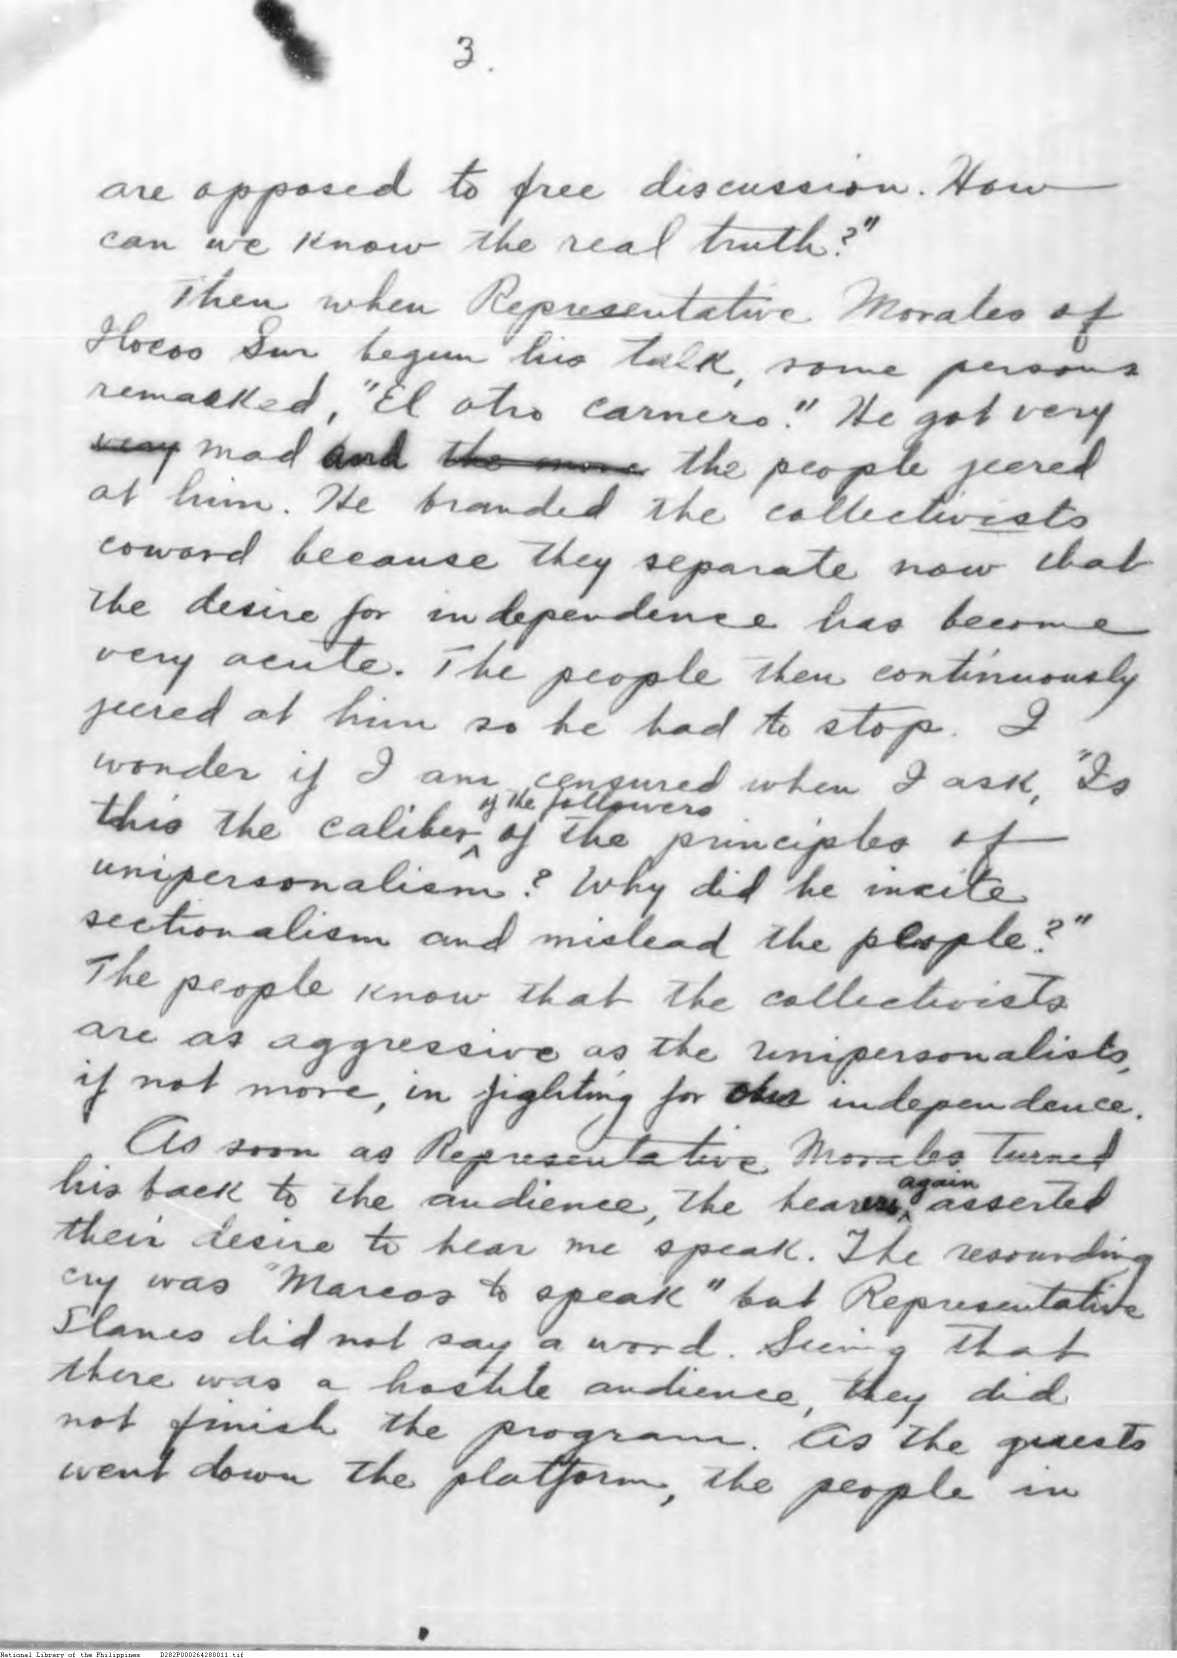 3.
are opposed to free discussion. How
can we know the real truth?"
Then when Representative Morales of
Ilocos Sur begun his talk, some persons
remarked, "El otro carnero." He got very
very mad and the more the people jeered
at him. He branded the collectivists
coward because they separate now that
the desire for independence has become
very acute. The people then continuously
jeered at him so he had to stop. I
wonder if I am censured when I ask, "Is
of the followers
this the caliber of the principles of
unipersonalism? Why did he incite
sectionalism and mislead the people?"
The people know that the collectivists
are as aggressive as the unipersonalists,
if not more, in fighting for our independence.
As soon as Representative Morales turned
again
his back to the audience, the hearers asserted
their desire to hear me speak. The resounding
cry was "Marcos to speak" but Representative
Llanes did not say a word. Seeing that
there was a hostile audience, they did
not finish the program. As the guests
went down the platform, the people in
National Library of the Philippines D282P000264288011.tif